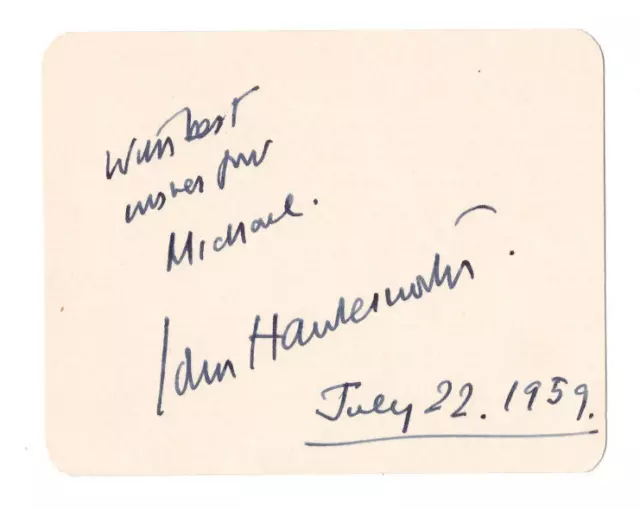 With best
wishes for
Michael.
John Hawkesworth.
July 22. 1959.